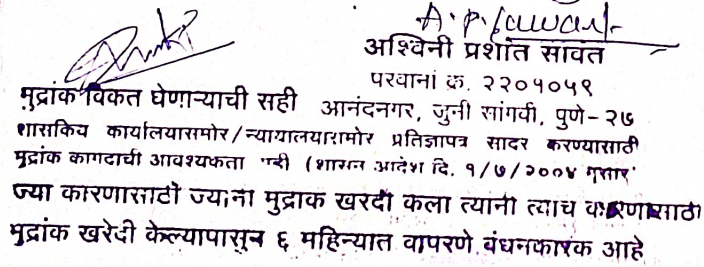 A.P.Sawant
अश्विनी प्रशांत सावंत
परवाना क्र. २२०१०५९
मुद्रांक विकत घेणाऱ्याची सही आनंदनगर, जुनी सांगवी, पुणे-२७
शासकिय कार्यालयासमोर/न्यायालयासमोर प्रतिज्ञापत्र सादर करण्यासाठी
मुद्रांक कागदाची आवश्यकता नाही (शासन आदेश दि. १/७/२००४ नुसार
ज्या कारणासाठी ज्यांनी मुद्रांक खरेदी केला त्यांनी त्याच कारणासाठी
मुद्रांक खरेदी केल्यापासून ६ महिन्यात वापरणे बंधनकारक आहे